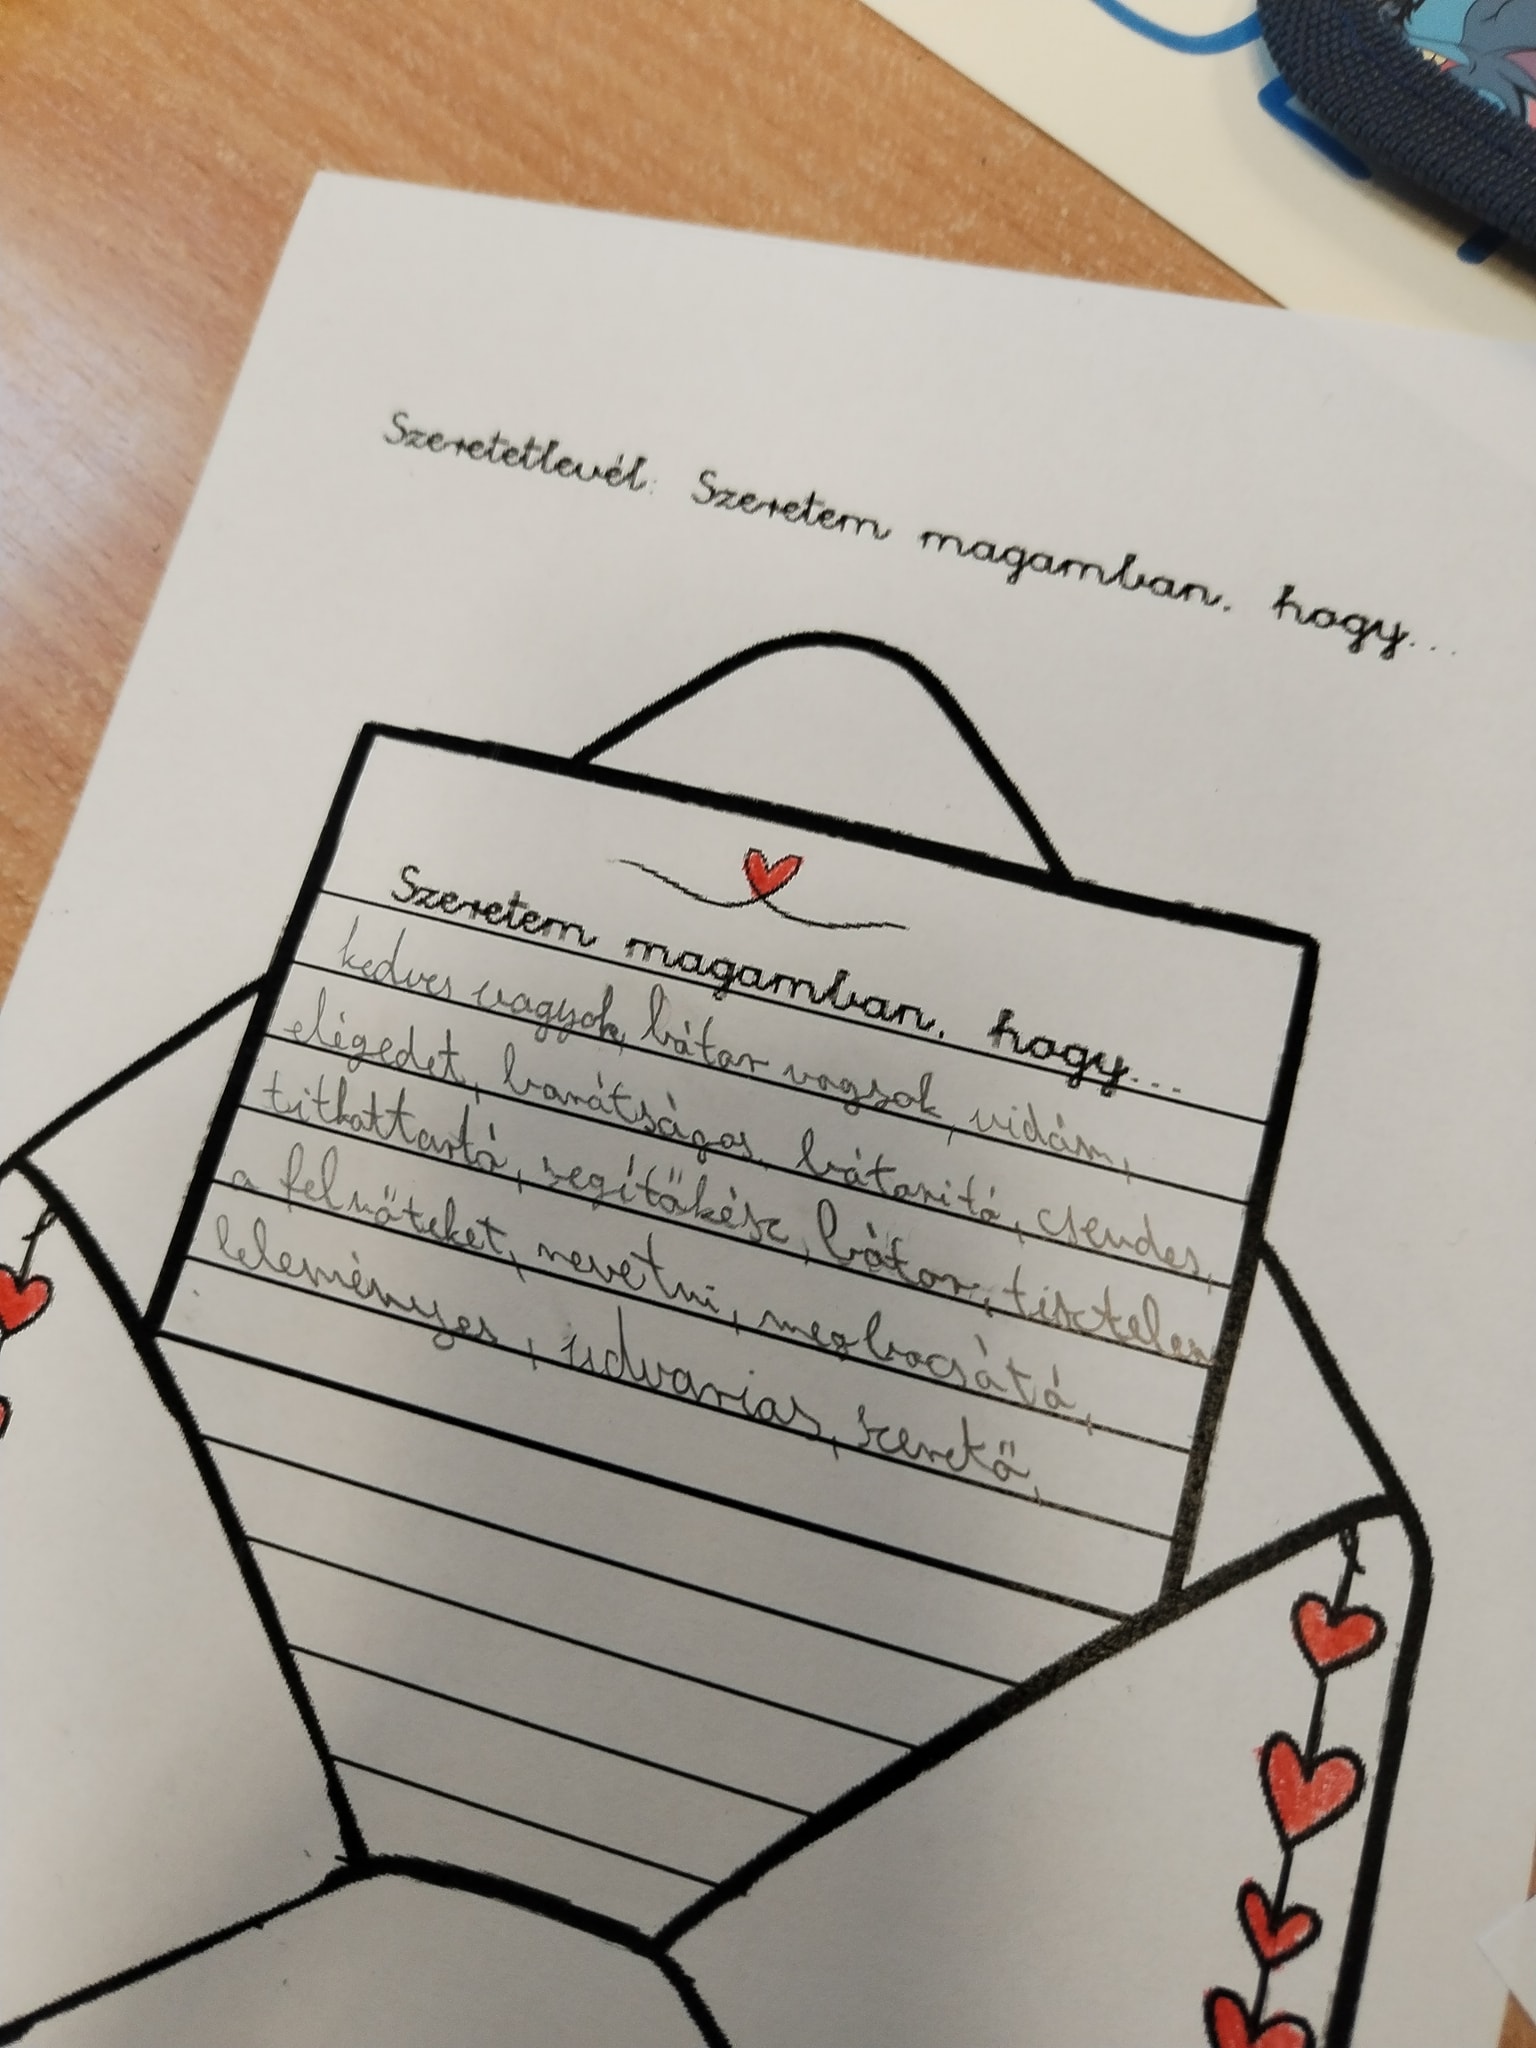 Szeretetlevél: Szeretem magamban, hogy...
Szeretem magamban, hogy...
kedves vagyok, bátor vagyok, vidám,
elégedet, barátságos, bátorító, csendes,
titkottartó, segítőkész, bátor, tisztelem
a felnőteket, nevetni, megbocsátó,
leleményes, udvarias, szerető,